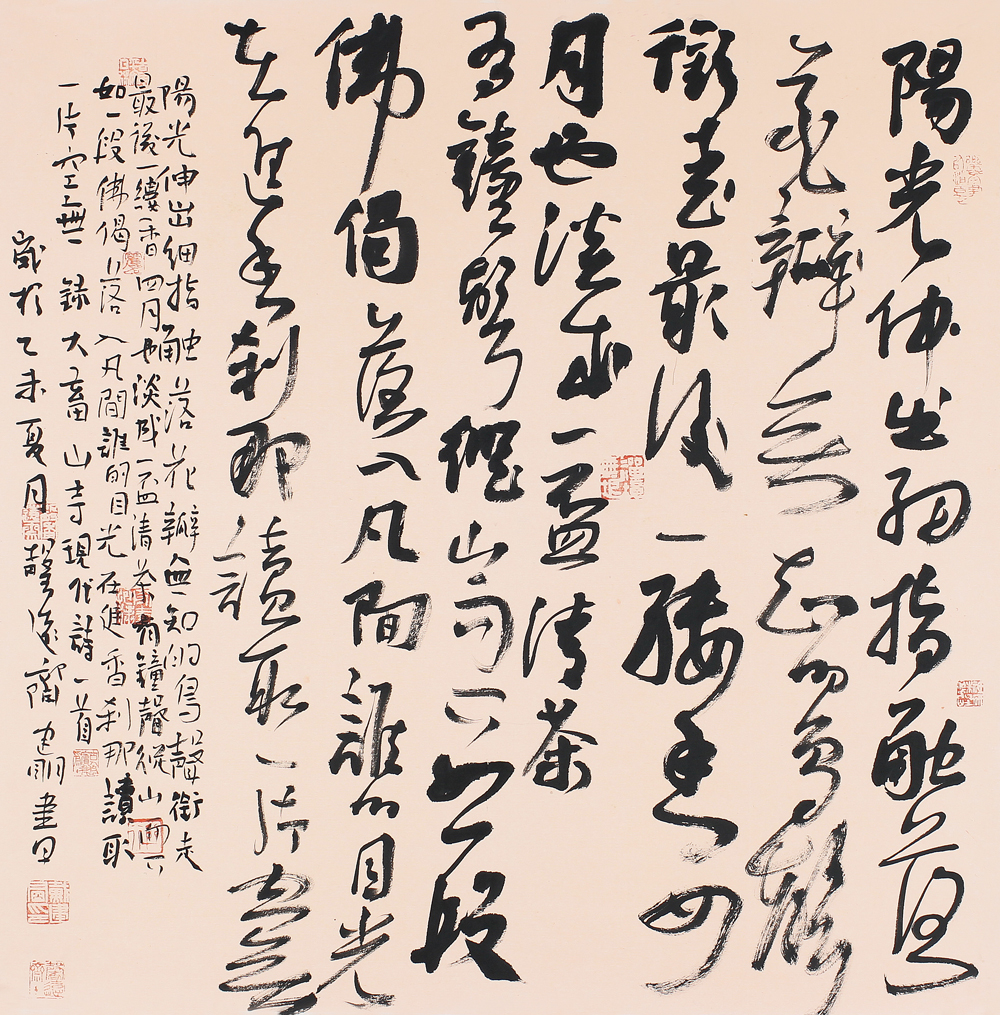 陽光伸出細指觸落
花瓣無知的鳥聲
銜走最後一縷香四
月也淡成一盃清茶
有鐘聲從山而下如一段
佛偈落入凡間誰的目光
在進香刹那讀取一片空無
陽光伸出細指觸落花瓣無知的鳥聲銜走
最後一縷香四月也淡成一盃清茶有鐘聲從山而下
如一段佛偈落入凡間誰的目光在進香刹那讀取
一片空無 錄大畜山寺現代詩一首
歲於乙未夏月 建明書